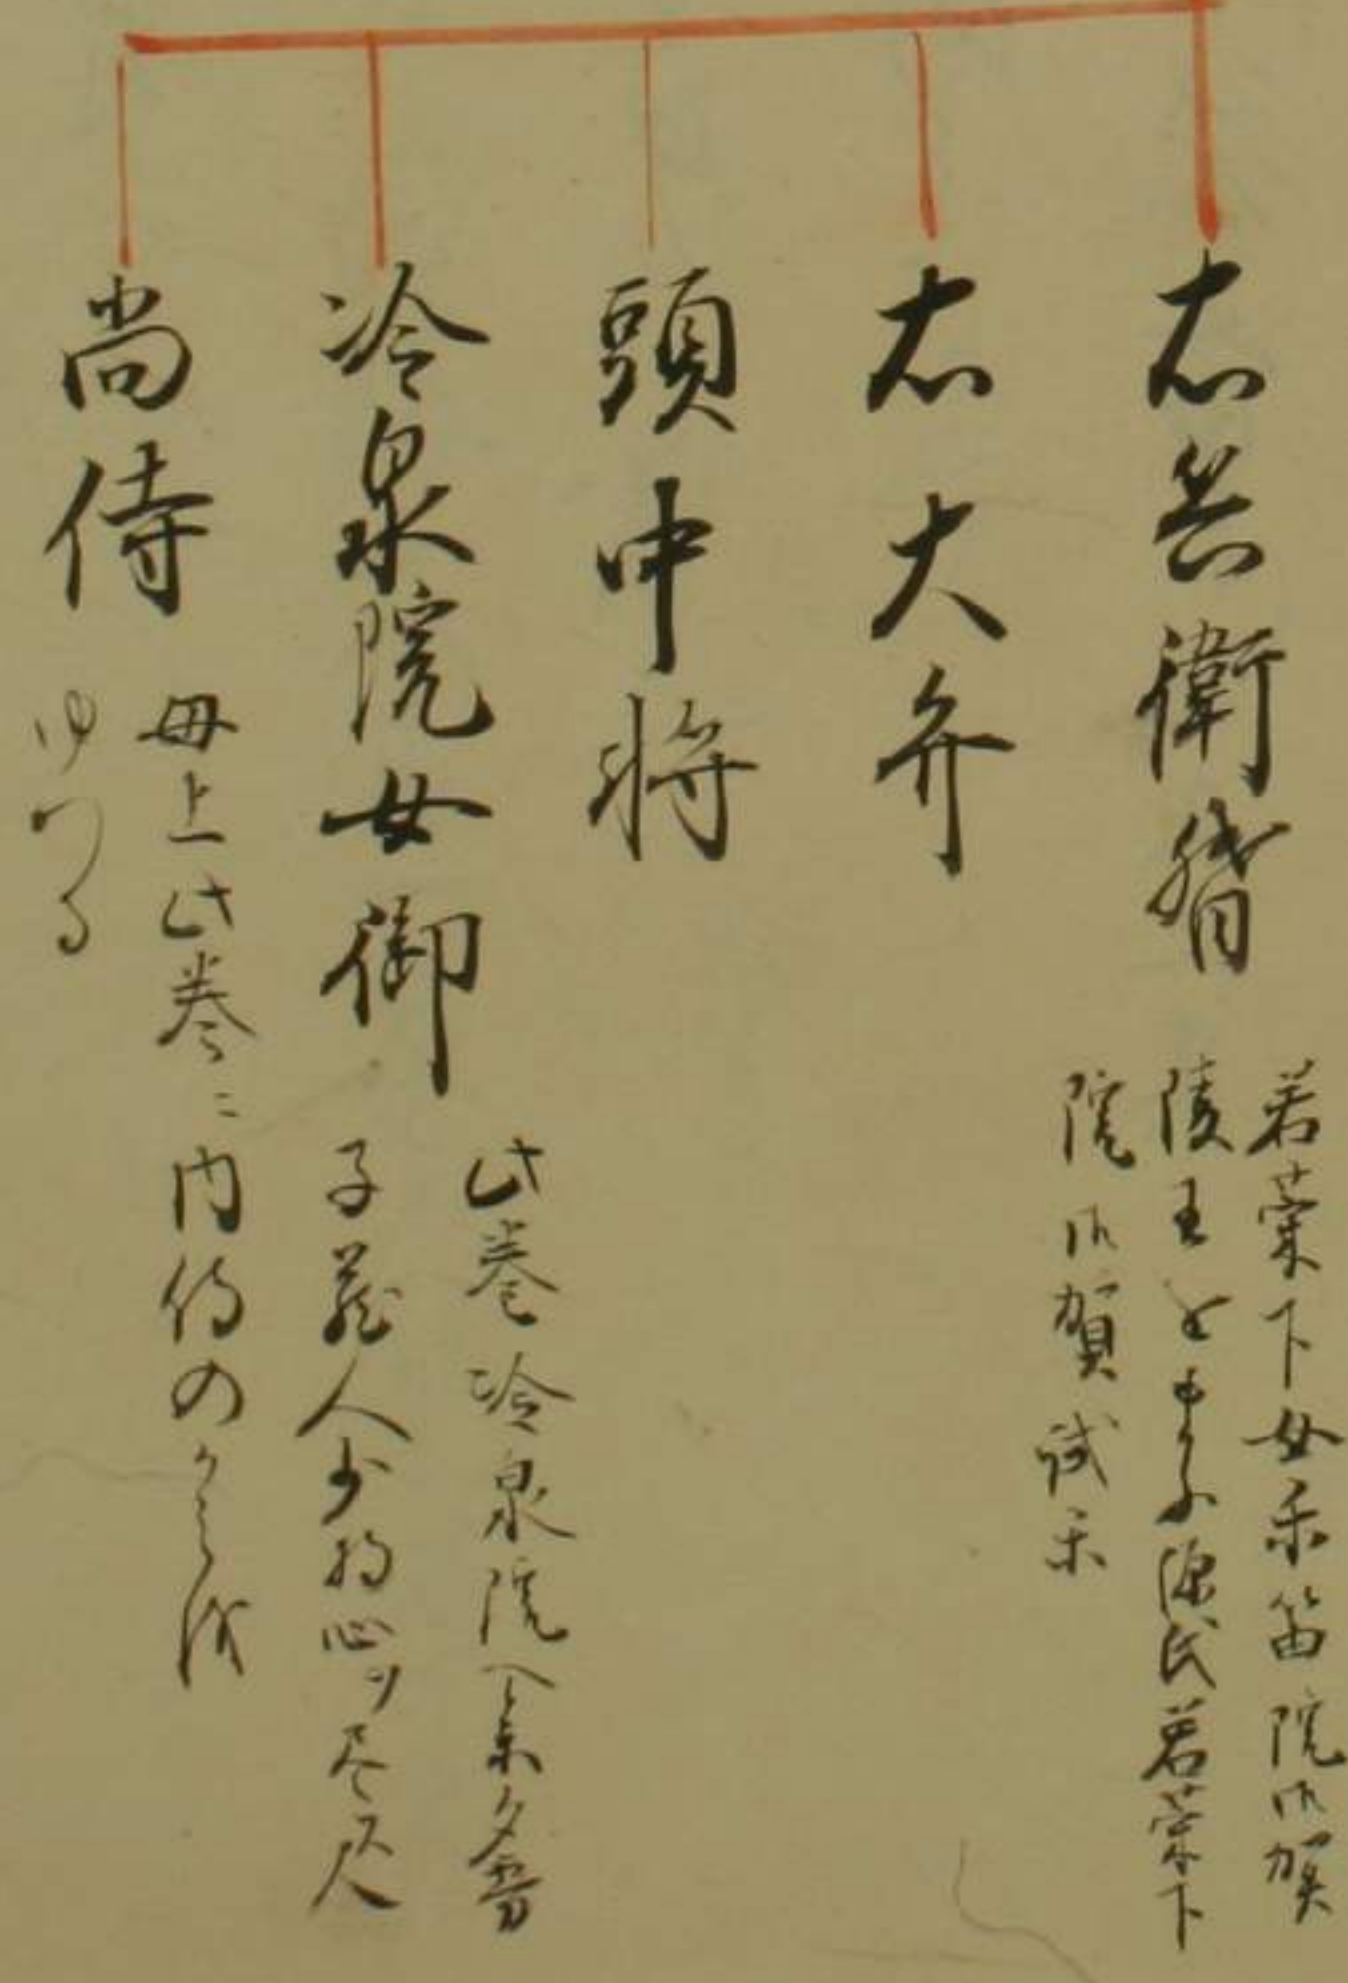 右兵衛督
若菜下女楽笛院御賀
陵王を申事源氏若菜下
院御賀試楽
右大弁
頭中将
冷泉院女御
此巻冷泉院へ参夕霧
子蔵人少将心ヲ尽ス人
尚侍
母上此巻ニ内侍のかみを
ゆつる